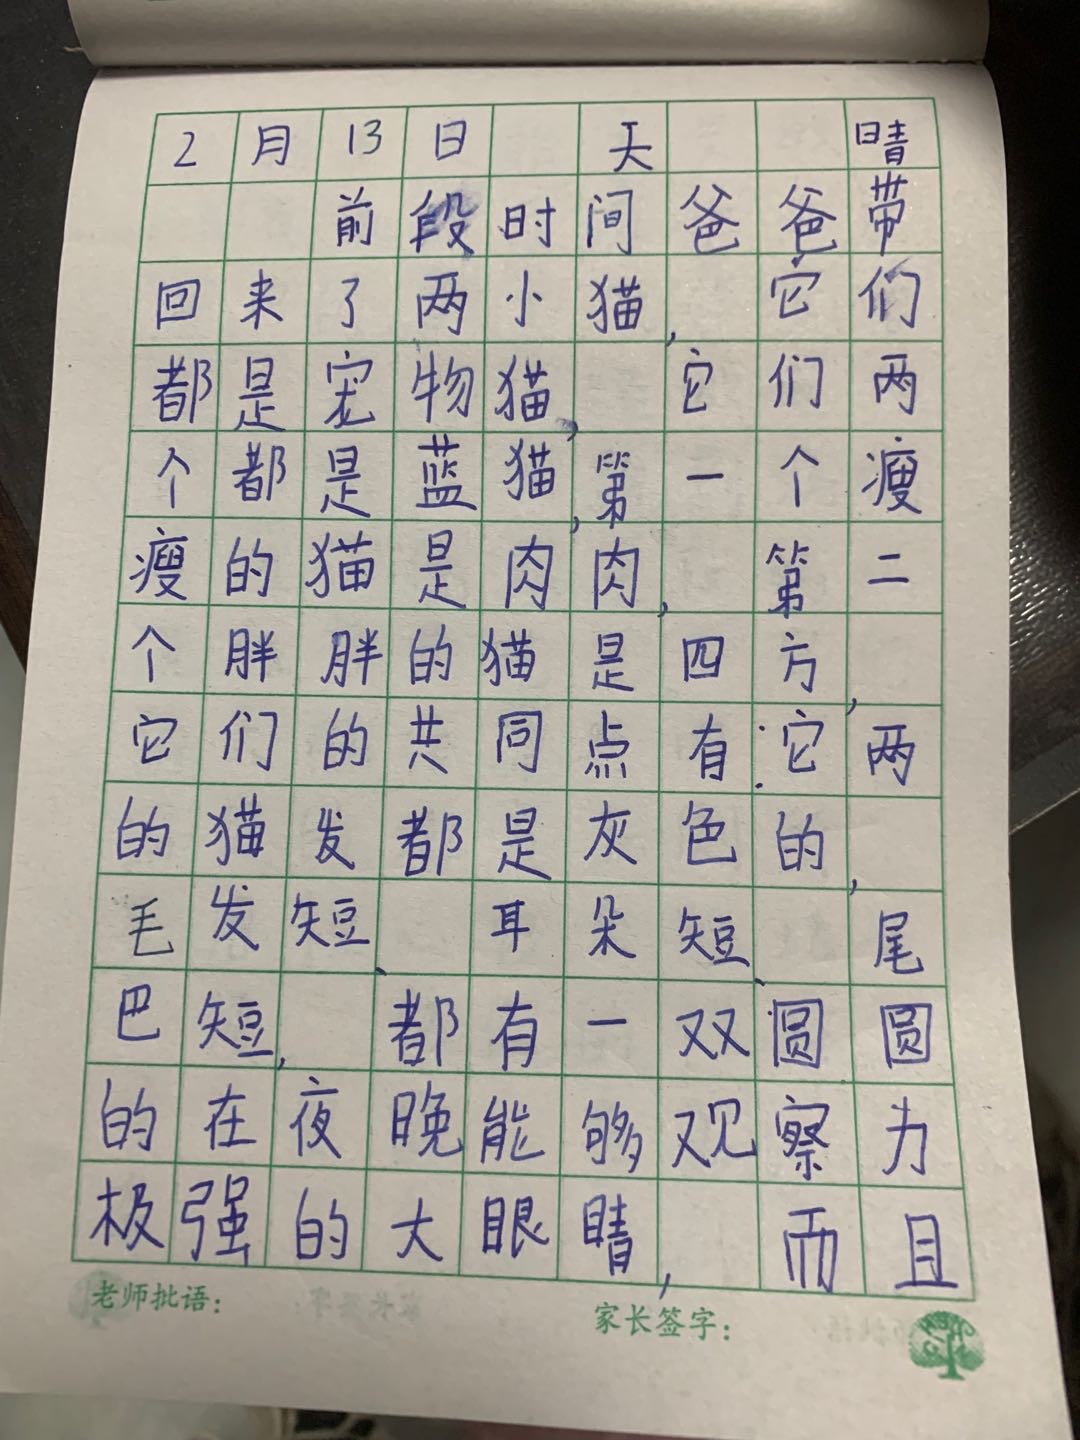 2月13日 天 晴
前段时间爸爸带
回来了两小猫,它们
都是宠物猫,它们两
个都是蓝猫,第一个瘦
瘦的猫是肉肉,第二
个胖胖的猫是四方,
它们的共同点有:它两
的猫发都是灰色的,
毛发短、耳朵短、尾
巴短,都有一双圆圆
的在夜晚能够观察力
极强的大眼睛,而且
老师批语:
家长签字: